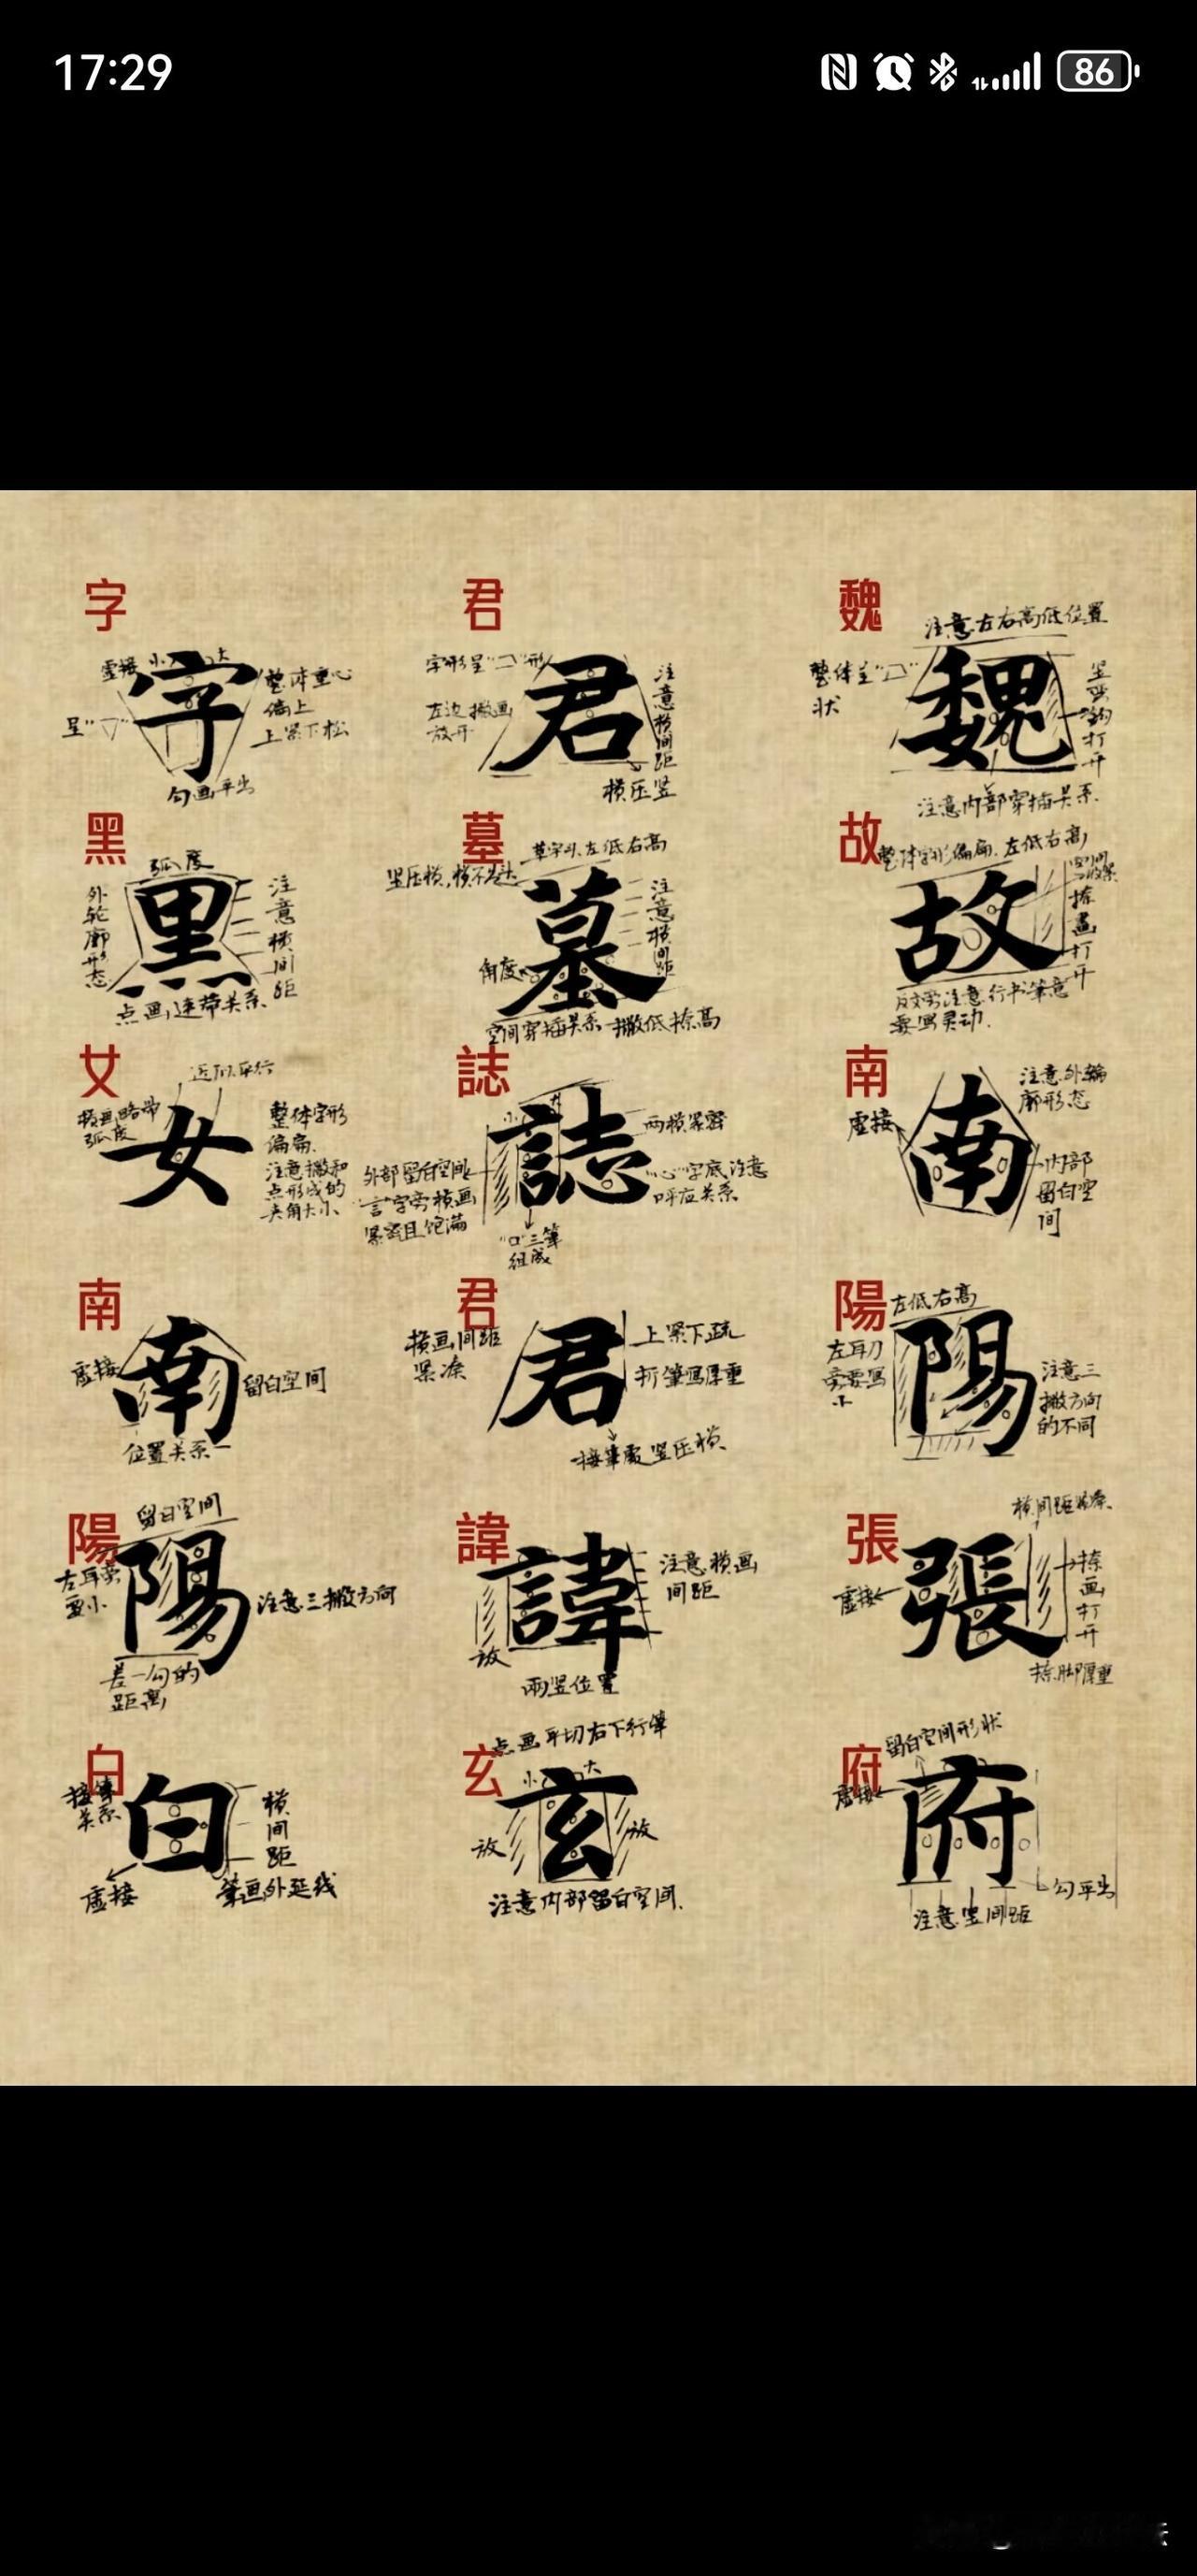 17:29
86
字
虚接
小
大
字
呈"▽"
整体重心
偏上
上紧下松
勾画平出
君
字形呈"
形
左边撇画
放开
君
注意横间距
横压竖
魏
注意左右高低位置
整体呈"
状
魏
竖弯钩打开
注意内部穿插关系
黑
弧度
外轮廓形态
黑
注意横间距
点画连带关系
墓
草字头左低右高
竖压横,横不
墓
注意横间距
角度
空间穿插关系 撇低捺高
故
整体字形偏扁、左低右高
故
捺画打开
反文旁注意行书笔意
要写灵动.
女
近似平行
横画略带
弧度
女
整体字形
偏扁.
注意撇和
点形成的
夹角大小
誌
小
大
誌
两横紧密
外部留白空间
"言"字旁横画
紧密且饱满
"心"字底注意
呼应关系
"口"三筆
组成
南
虚接
南
注意外輪
廓形态
内部
留白空
间
南
虚接
南
留白空间
位置关系
君
横画间距
紧凑
君
上紧下疏
折筆写厚重
接筆處竖压横
陽
左低右高
左耳刀
旁要写
小
陽
注意三
撇方向
的不同
陽
留白空间
左耳旁
要小
陽
注意三撇方向
差一勾的
距离
諱
諱
注意横画
间距
放
兩竖位置
張
横间距紧凑
虚接
張
捺画打开
捺脚厚重
白
接筆
关系
白
横间距
虚接
筆画外延线
玄
点画平切右下行筆
小
大
玄
放
放
注意内部留白空间.
府
留白空间形状
虚接
府
勾平出
注意竖间距